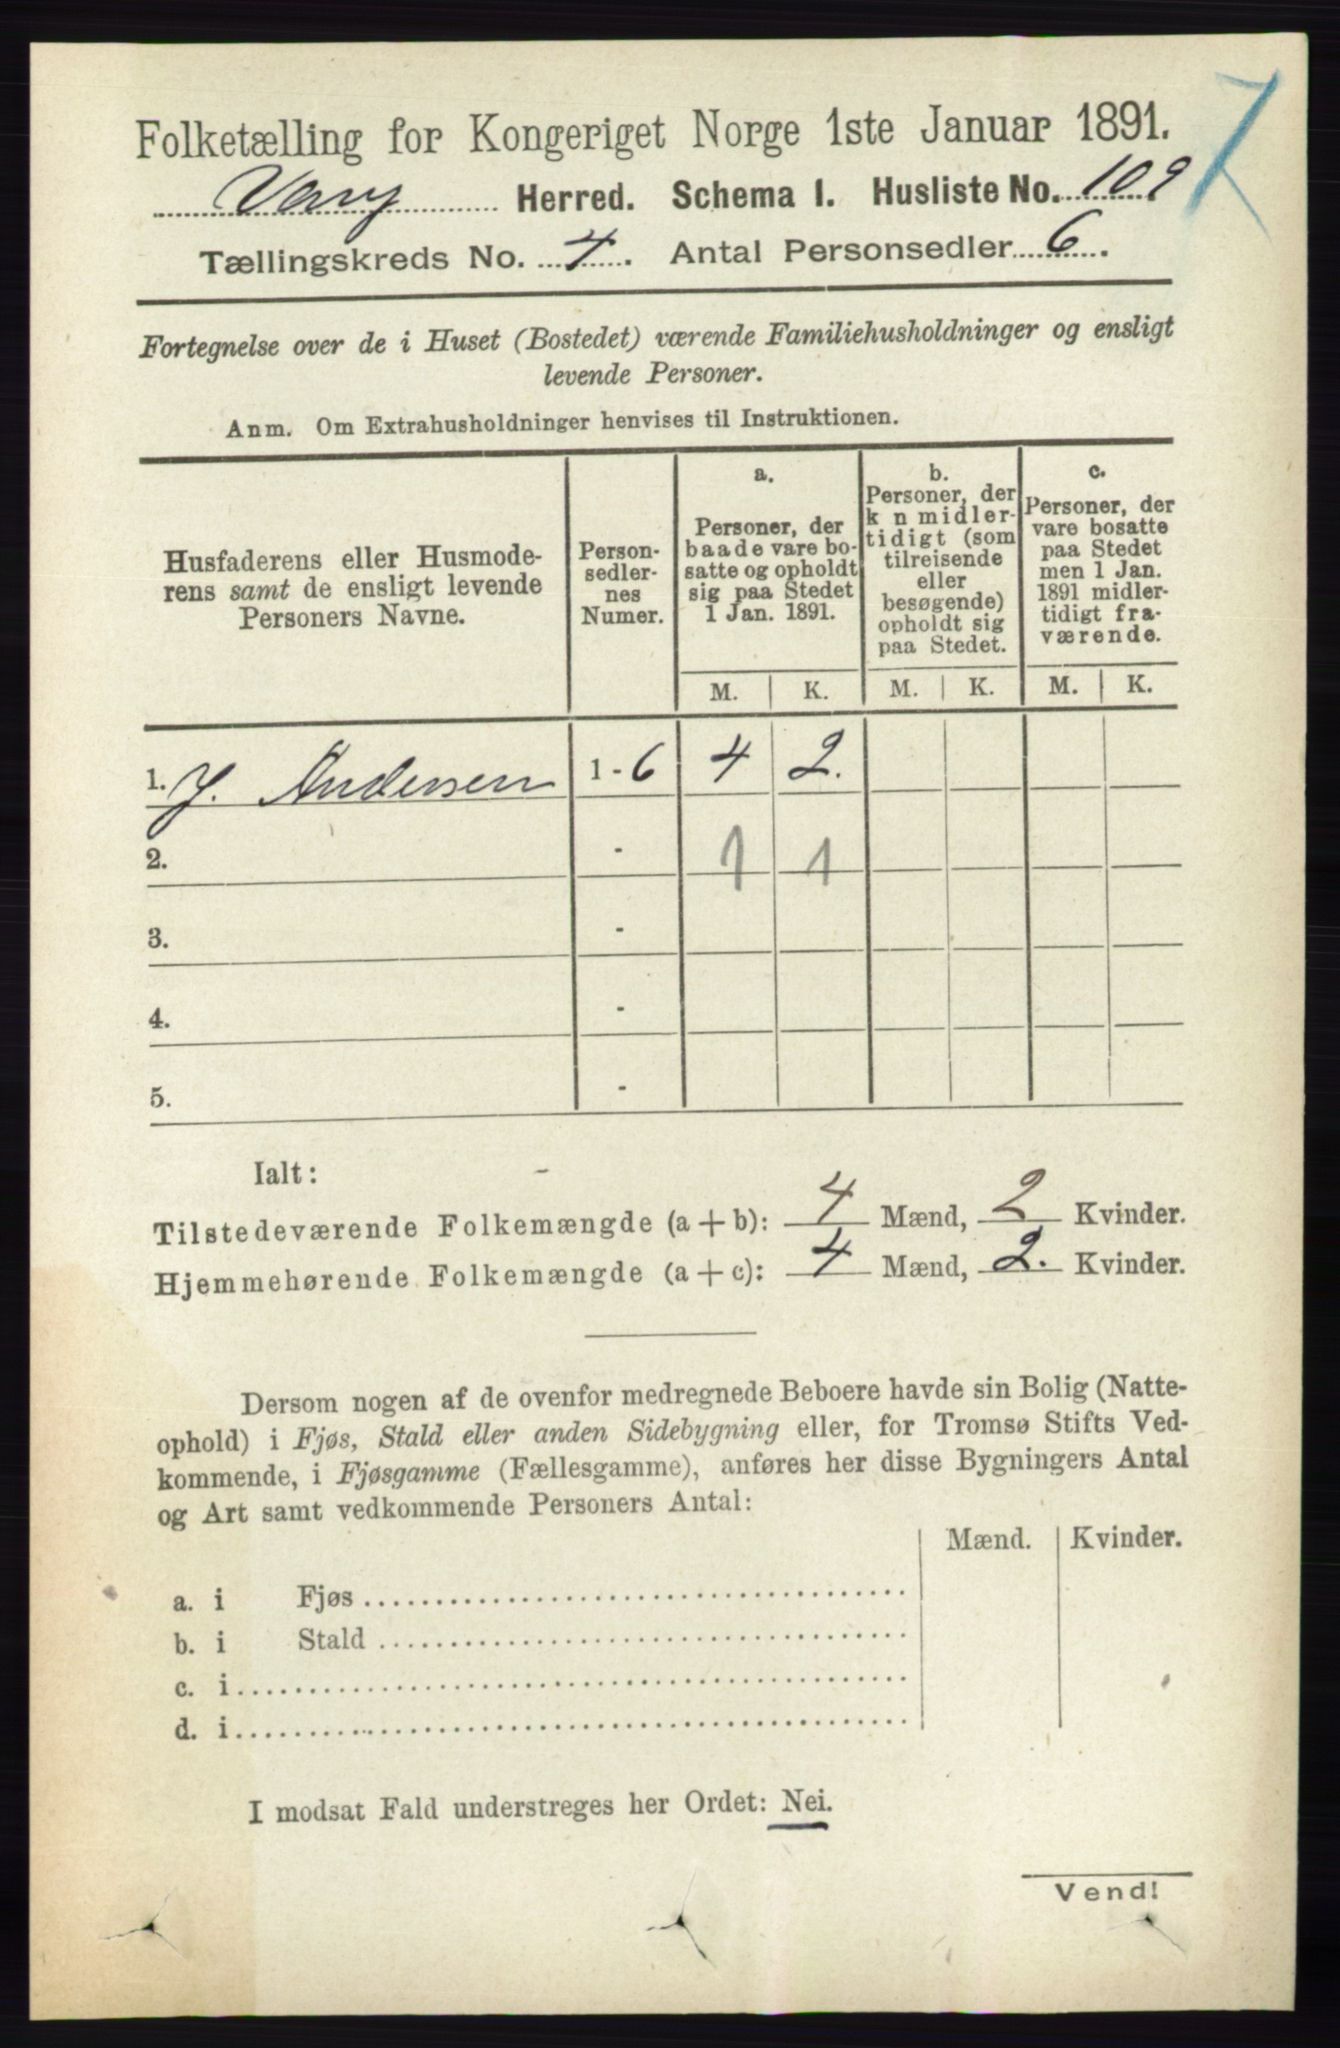 Folketælling for Kongeriget Norge 1ste Januar 1891.
Vang Herred. Schema 1. Husliste No. 109
Tællingskreds No. 4. Antal Personsedler 6.
Fortegnelse over de i Huset (Bostedet) værende Familiehusholdninger og ensligt
levende Personer.
Anm. Om Extrahusholdninger henvises til Instruktionen.
Husfaderens eller Husmode-
rens samt de ensligt levende
Personers Navne.
Person-
sedler-
nes
Numer.
a.
Personer, der
baade vare bo-
satte og opholdt
sig paa Stedet
1 Jan. 1891.
b.
Personer, der
k n midler-
tidigt (som
tilreisende
eller
besøgende)
opholdt sig
paa Stedet.
c.
Personer, der
vare bosatte
paa Stedet
men 1 Jan.
1891 midler-
tidigt fra-
værende.
M. K. M. K. M. K.
1. J. Andersen 1 - 6 4 2.
2. - 1 1
3. -
4. -
5. -
Ialt: -
Tilstedeværende Folkemængde (a + b): 4 Mænd, 2 Kvinder.
Hjemmehørende Folkemængde (a + c): 4 Mænd, 2. Kvinder.
Dersom nogen af de ovenfor medregnede Beboere havde sin Bolig (Natte-
ophold) i Fjøs, Stald eller anden Sidebygning eller, for Tromsø Stifts Ved-
kommende, i Fjøsgamme (Fællesgamme), anføres her disse Bygningers Antal
og Art samt vedkommende Personers Antal:
Mænd. Kvinder.
a. i Fjøs
b. i Stald
c. i
d. i
I modsat Fald understreges her Ordet: Nei.
Vend!